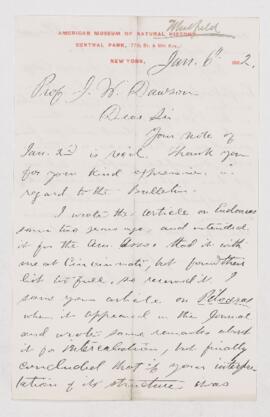 Whitfield
AMERICAN MUSEUM OF NATURAL HISTORY,
CENTRAL PARK, 77th St. & 8th Ave.,
NEW YORK, Jan. 6th 1882.
Prof J. W. Dawson
Dear Sir
Your note of
Jan. 2nd is recd. Thank you
for your kind expression in
regard to the Bulletin.
I wrote the article on
some two years ago, and intended
it for the Am. Asso. Had it with
me at Cincinnati, but found their
list too full, so reserved it. I
saw your article on
when it appeared in the Journal
and wrote some remarks about
it for intercalation, but finally
concluded that if your interpre-
tation of its structure was